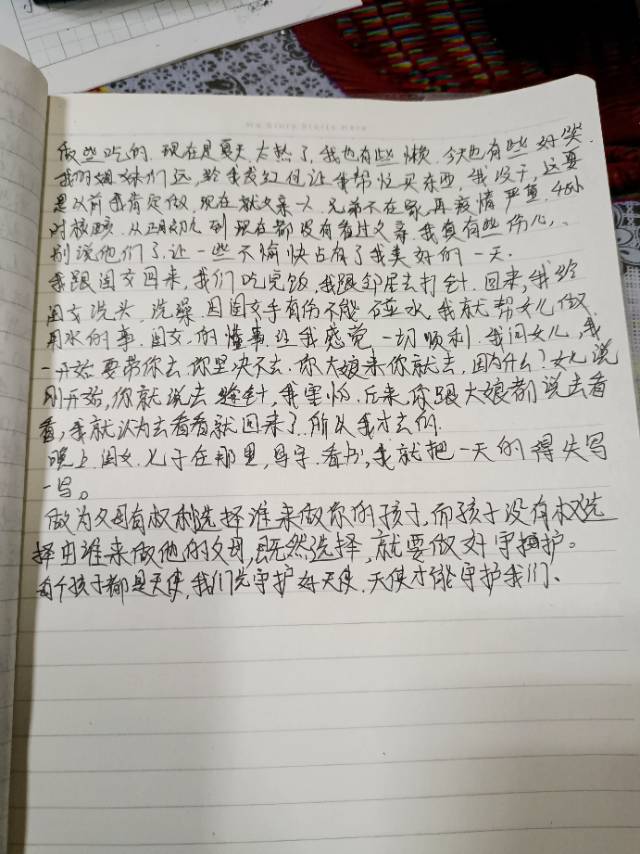 My Story Starts Here
做些吃的.现在是夏天.太热了,我也有些懒.今天也有些好笑.
我的姐妹们远,给我发红包让我帮忙买东西,我没干,这要
是以前我肯定做,现在就父亲一人,兄弟不在家,再疫情严重.48小
时核酸.从正月初几到现在都没有看过父亲.我真有些伤心,
别说他们了.让一些不愉快占有了我美好的一天.
我跟闺女回来,我们吃完饭,我跟邻居去打针.回来,我给
闺女洗头.洗澡.因闺女手有伤不能碰水,我就帮女儿做
用水的事.闺女的懂事让我感觉一切顺利.我问女儿,我
一开始要带你去.你坚决不去.你大娘来你就去,因为什么?女儿说
刚开始,你就说去缝针,我害怕.后来,你跟大娘都说去看
看,我就认为去看看就回来了.所以我才去的.
晚上.闺女.儿子在那里,写字.看书,我就把一天的得失写
一写。
做为父母有权利选择谁来做你的孩子,而孩子没有权选
择由谁来做他的父母,既然选择,就要做好守护。
每个孩子都是天使,我们先守护好天使.天使才能守护我们、